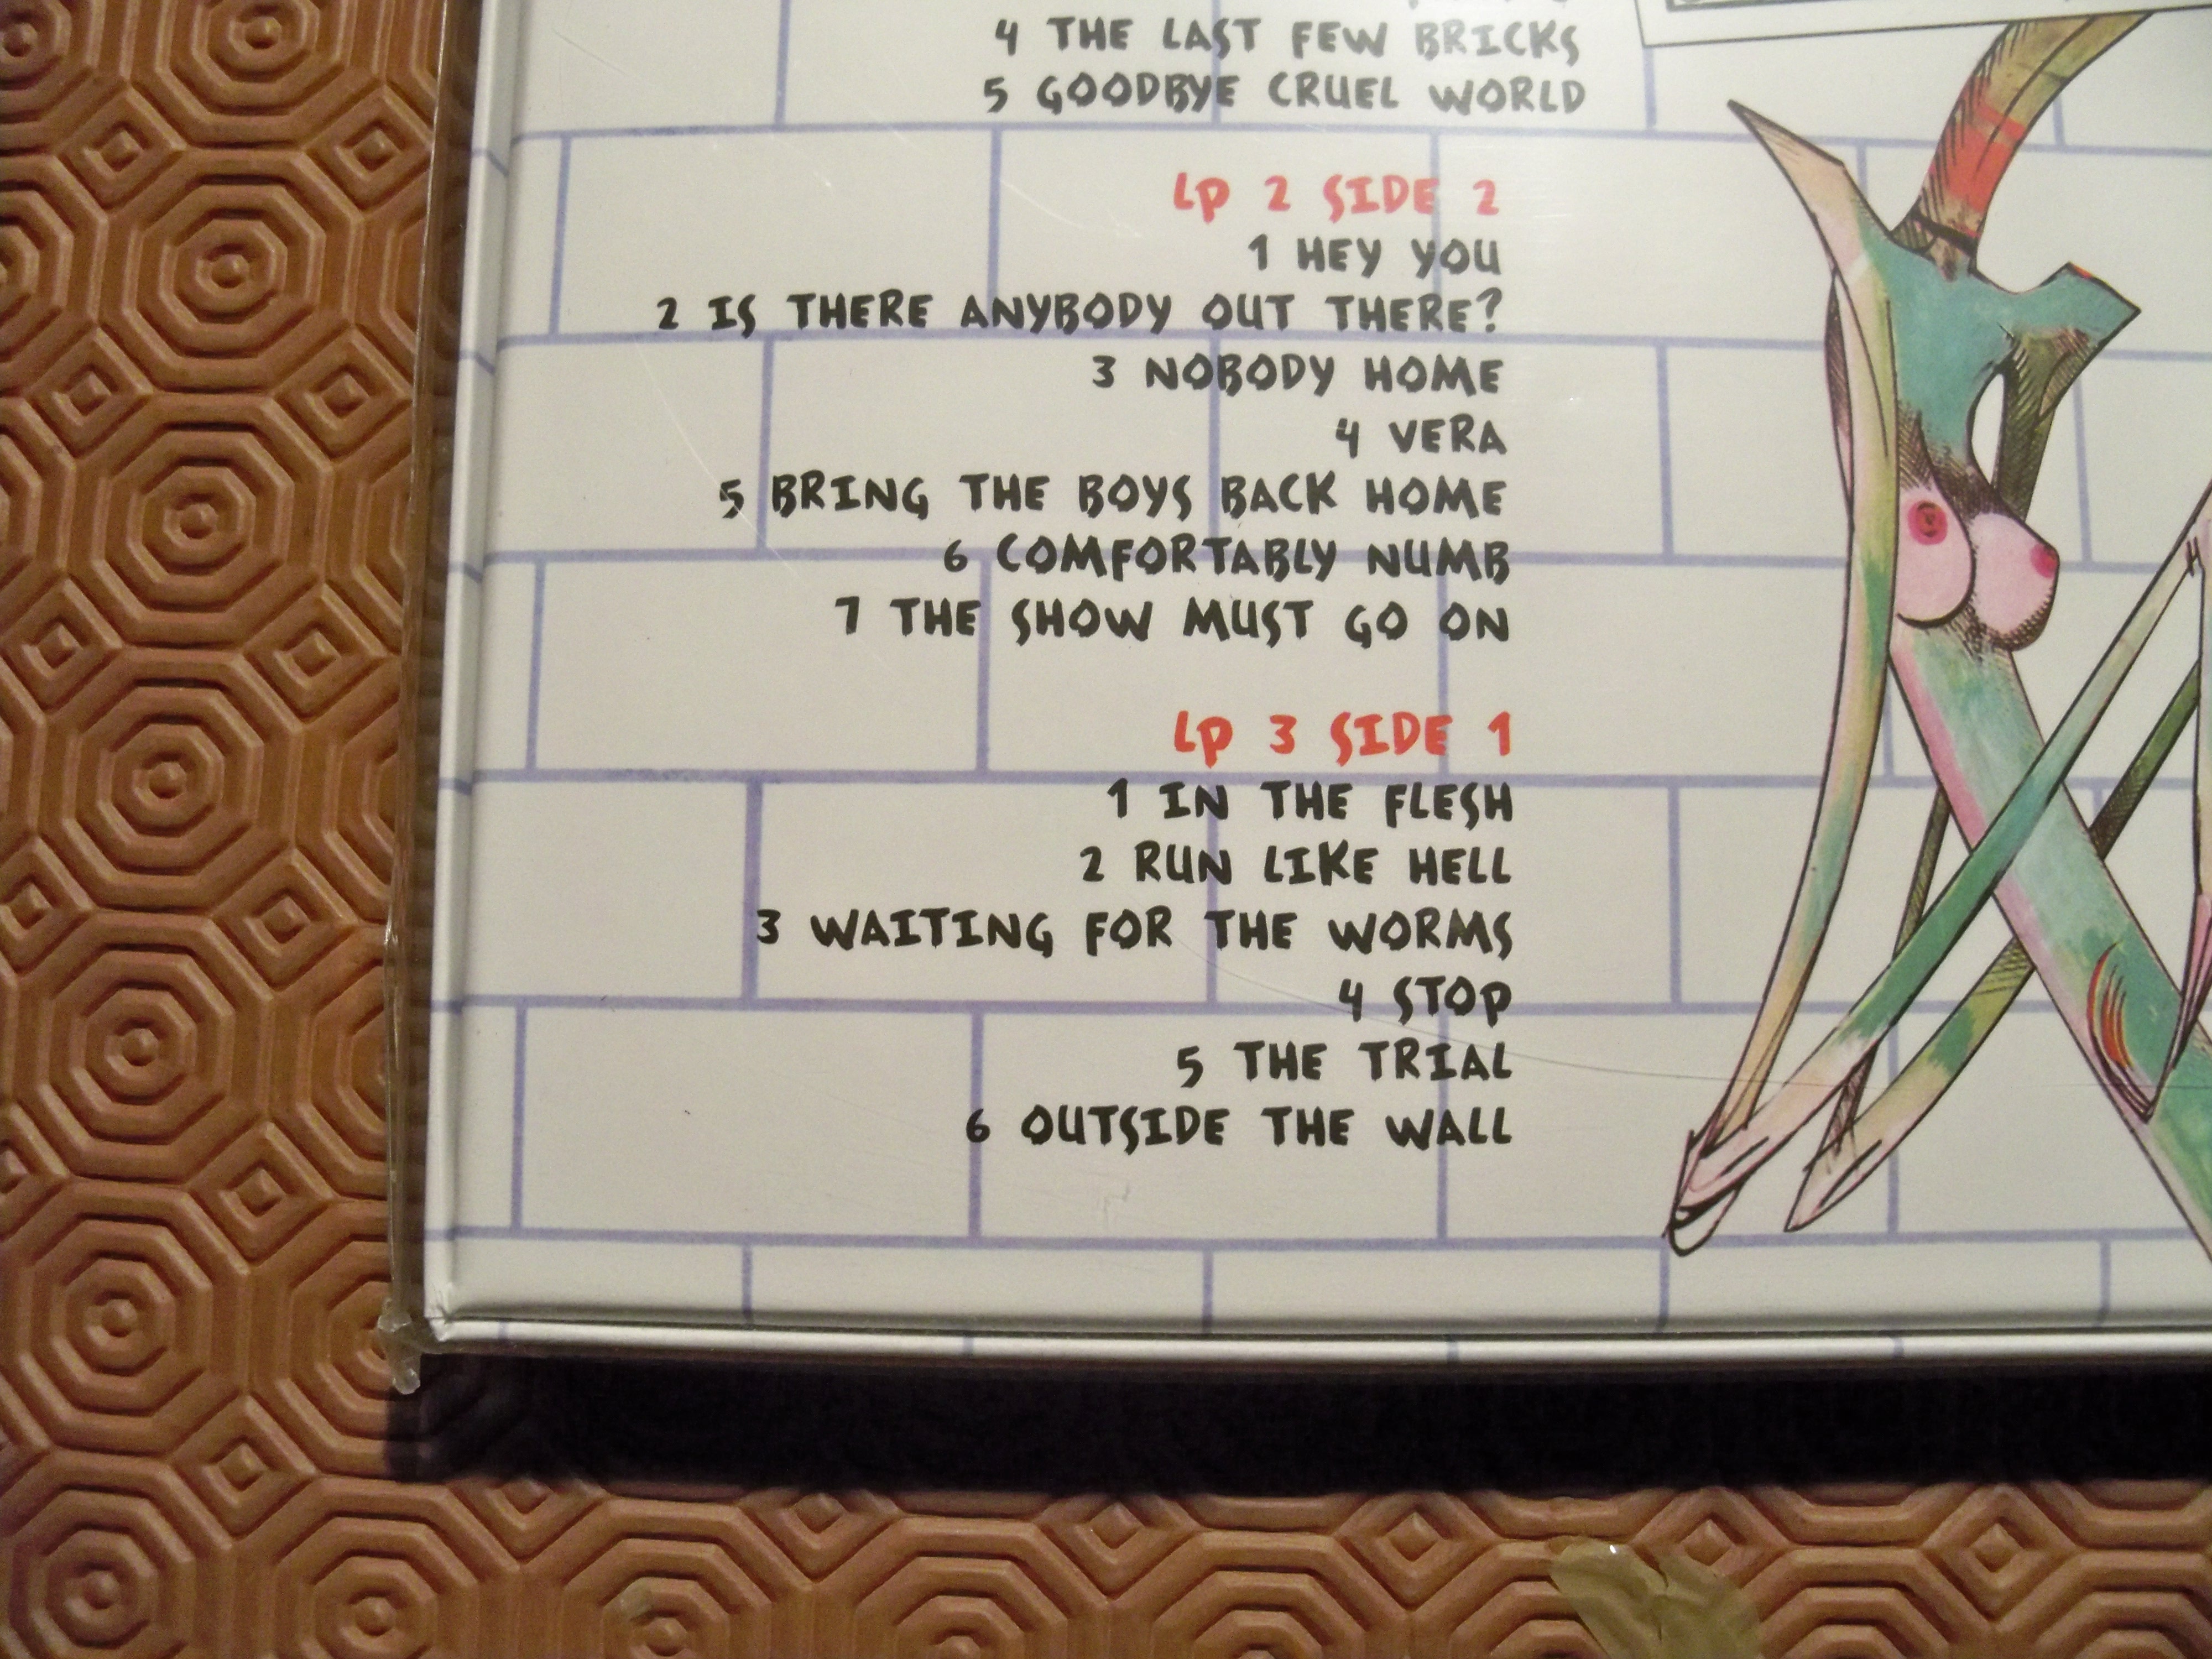 4 THE LAST FEW BRICKS
5 GOODBYE CRUEL WORLD
LP 2 SIDE 2
1 HEY YOU
2 IS THERE ANYBODY OUT THERE?
3 NOBODY HOME
4 VERA
5 BRING THE BOYS BACK HOME
6 COMFORTABLY NUMB
7 THE SHOW MUST GO ON
LP 3 SIDE 1
1 IN THE FLESH
2 RUN LIKE HELL
3 WAITING FOR THE WORMS
4 STOP
5 THE TRIAL
6 OUTSIDE THE WALL